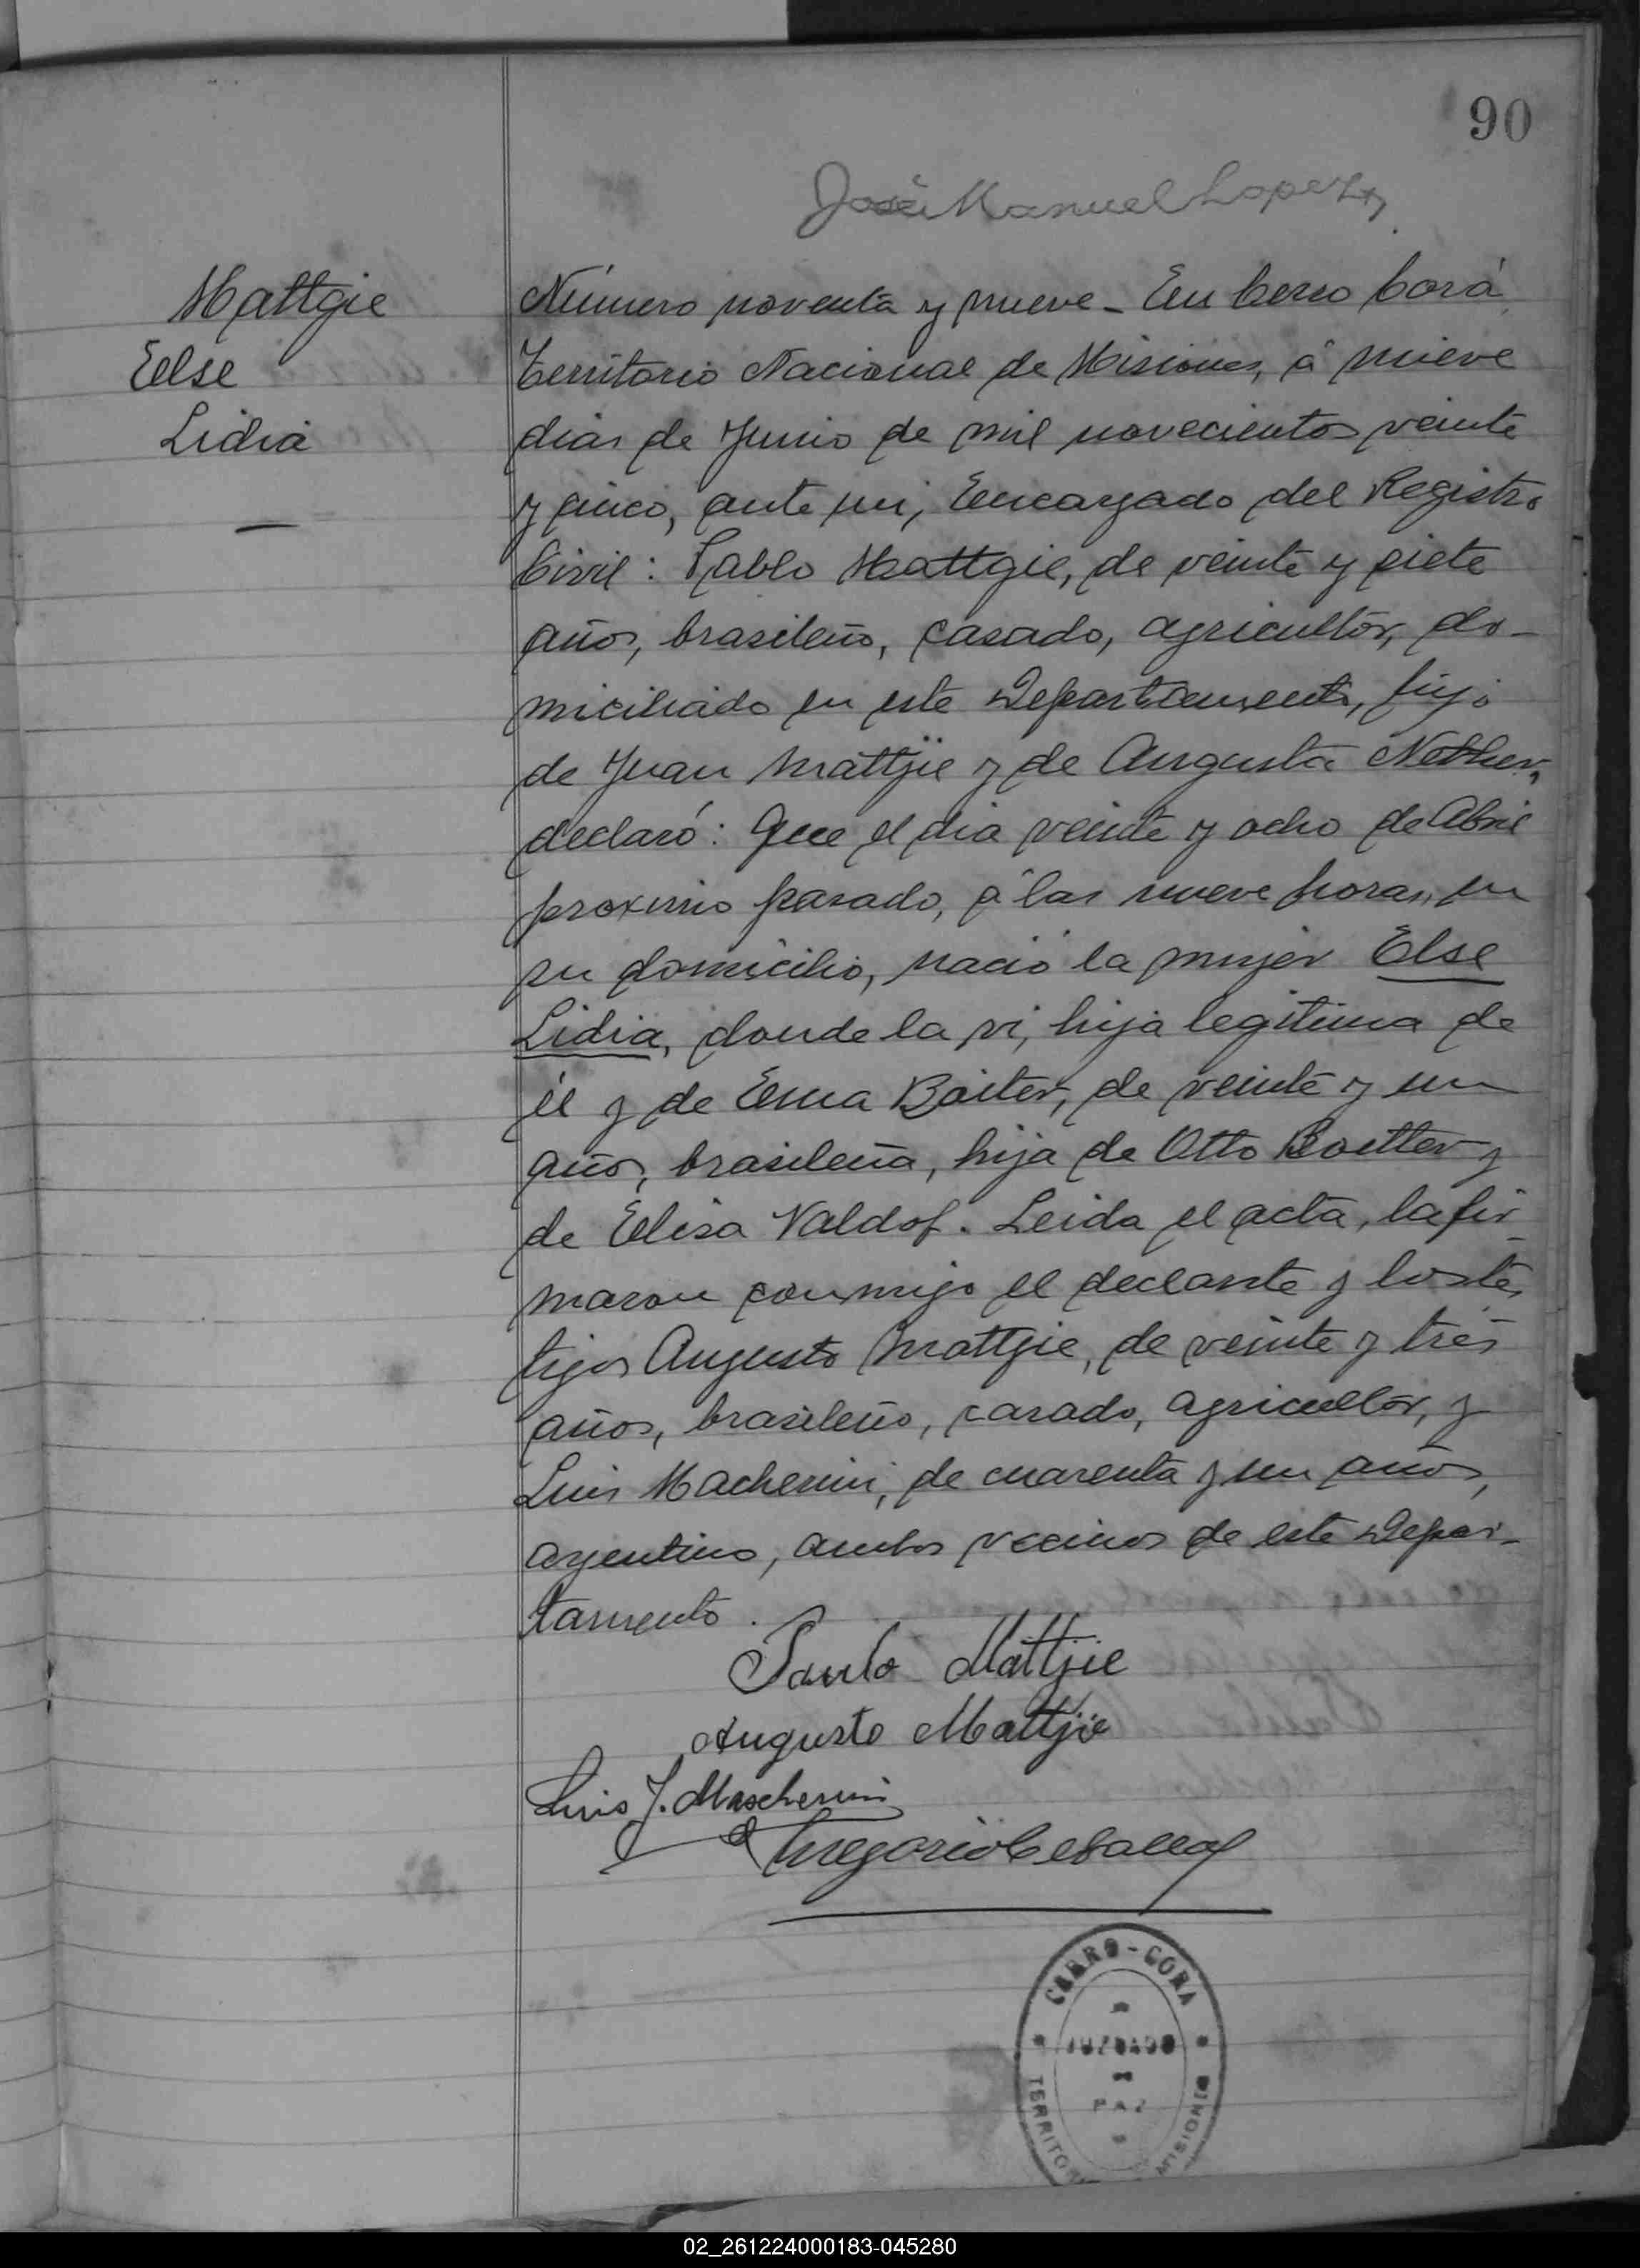 90
José Manuel Lopez
Mattgie
Eelse
Lidia
Número noventa y nueve - En Cerro Corá
Territorio Nacional de Misiones, á nueve
dias de Junio de mil novecientos veinte
y cinco, ante mi, Encargado del Registro
Civil: Pablo Mattgie, de veinte y siete
años, brasileño, casado, agricultor, do-
miciliado en este Departamento, hijo
de Juan Mattjie y de Augusta
declaró: Que el dia veinte y ocho de Abril
proximo pasado, á las nueve horas, en
su domicilio, nació la mujer Else
Lidia, donde la vi, hija legitima de
él y de Ema Boiter, de veinte y un
años, brasileña, hija de Otto Boetter y
de Elisa Valdof. Leida el acta, la fir-
maron conmigo el declarte y los tes-
tigos Augusto Mattgie, de veinte y tres
años, brasileño, casado, agricultor, y
Luis Macherini, de cuarenta y un años,
argentino, ambos vecinos de este Depar-
tamento.
Paulo Mattjie
Augusto Mattjie
Luis J. Mascherini
Gregorio Ceballos
CERRO-CORA
JUZGADO
PAZ
TERRITO MISIONES
02_261224000183-045280